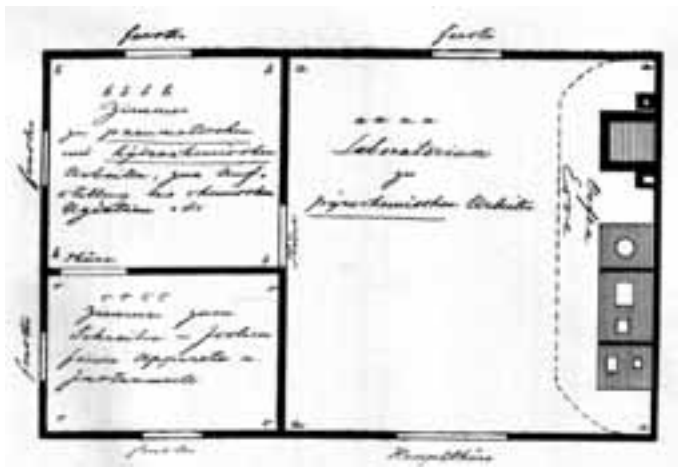 fenster
fenster
b b b b
Zimmer
zu pneumatischen
und hydrochemischen
Arbeiten, zur Auf-
stellung der chemischen
Agentien etc
a a a a
Laboratorium
zu
pyrochemischen Arbeiten
fenster
thüre
thüre
c c c c
Zimmer zum
Schreiben u
feine Apparate u
Instrumente
fenster
fenster
Hauptthüre